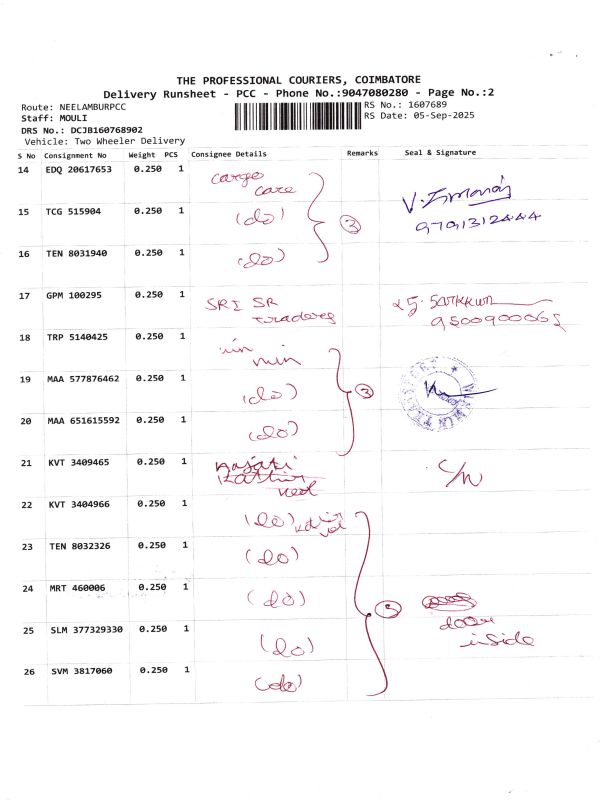 THE PROFESSIONAL COURIERS, COIMBATORE
Delivery Runsheet - PCC - Phone No.:9047080280 - Page No.:2
Route: NEELAMBURPCC
RS No.: 1607689
Staff: MOULI
RS Date: 05-Sep-2025
DRS No.: DCJB160768902
Vehicle: Two Wheeler Delivery
S No Consignment No Weight PCS Consignee Details Remarks Seal & Signature
14 EDQ 20617653 0.250 1 cargo care
15 TCG 515904 0.250 1 (do) 3 9791312444
16 TEN 8031940 0.250 1 (do)
17 GPM 100295 0.250 1 SRI SR traders
18 TRP 5140425 0.250 1 win min
19 MAA 577876462 0.250 1 (do) 3
20 MAA 651615592 0.250 1 (do)
21 KVT 3409465 0.250 1
22 KVT 3404966 0.250 1 (do)
23 TEN 8032326 0.250 1 (do)
24 MRT 460006 0.250 1 (do) 5 door inside
25 SLM 377329330 0.250 1 (do)
26 SVM 3817060 0.250 1 (do)